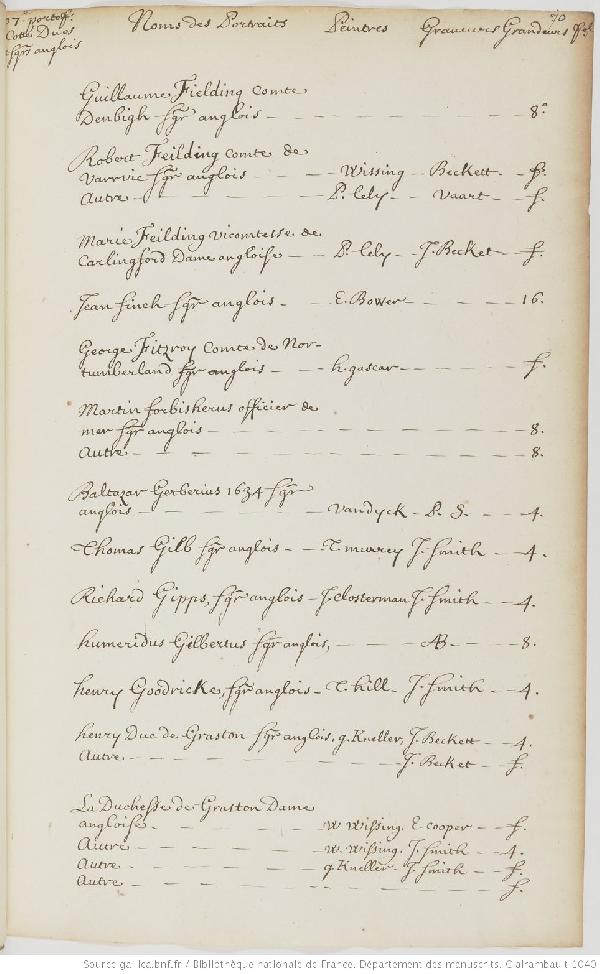 70
7.e portef.
Noms des Portraits Peintres Graveurs Grandeurs
Cotté Dues
sgrs anglois
Guillaume Fielding comte
Denbigh sgr anglois - 8.
Robert Feilding comte de
varrvic sgr anglois - Wissing - Beckett. - f.
Autre - P. lely - Vaart - f.
Marie Feilding vicomtesse de
Carlingford Dame angloise - P. lely - J. Becket - f.
Jean finch sgr anglois - E. Bower - 16.
George Fitzroy Comte de Nor-
tumberland sgr anglois - h. gascar - f.
Martin forbisherus officier de
mer sgr anglois - 8.
Autre - 8.
Baltazar Gerberius 1634 sgr
anglois - Vandyck - P. S. - 4.
Thomas Gilb sgr anglois - T. murrey J. Smith - 4.
Richard Gipps, sgr anglois - J. Closterman J. Smith - 4.
humeridus Gilbertus sgr anglois, - AB - 8.
henry Goodricke, sgr anglois - T. hill - J. Smith - 4.
henry Duc de Grafton sgr anglois. g. Kneller, J. Beckett - 4.
Autre - J. Becket - f.
La Duchesse de Grafton Dame
angloise - W Wissing. E. cooper - f.
Autre - W. Wissing. J. Smith - 4.
Autre - g. Kneller - J. Smith - f.
Autre - f.
Source gallica.bnf.fr / Bibliothèque nationale de France. Département des manuscrits. Clairambault 1040